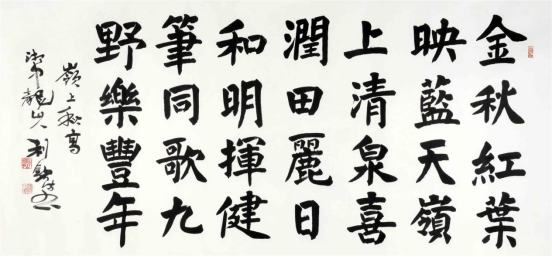 金秋紅葉
映藍天嶺
上清泉喜
潤田麗日
和明揮健
筆同歌九
野樂豐年
嶺上秋高